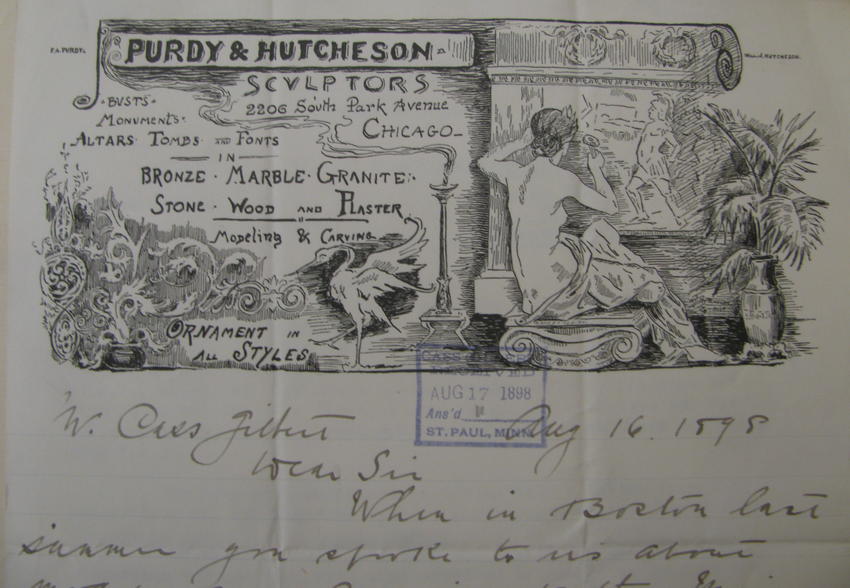 F.A. PURDY.
PURDY & HUTCHESON
Wm. J. HUTCHESON.
SCVLPTORS
2206 South Park Avenue
CHICAGO
· BUSTS ·
MONUMENTS ·
ALTARS · TOMBS · AND FONTS
IN
BRONZE · MARBLE · GRANITE ·
STONE · WOOD AND PLASTER
MODELING & CARVING
ORNAMENT IN
ALL STYLES
CASS GILBERT
RECEIVED
AUG 17 1898
Ans'd
ST. PAUL, MINN.
Aug 16. 1898
Cass Gilbert
Dear Sir
When in Boston last
summer you spoke to us about